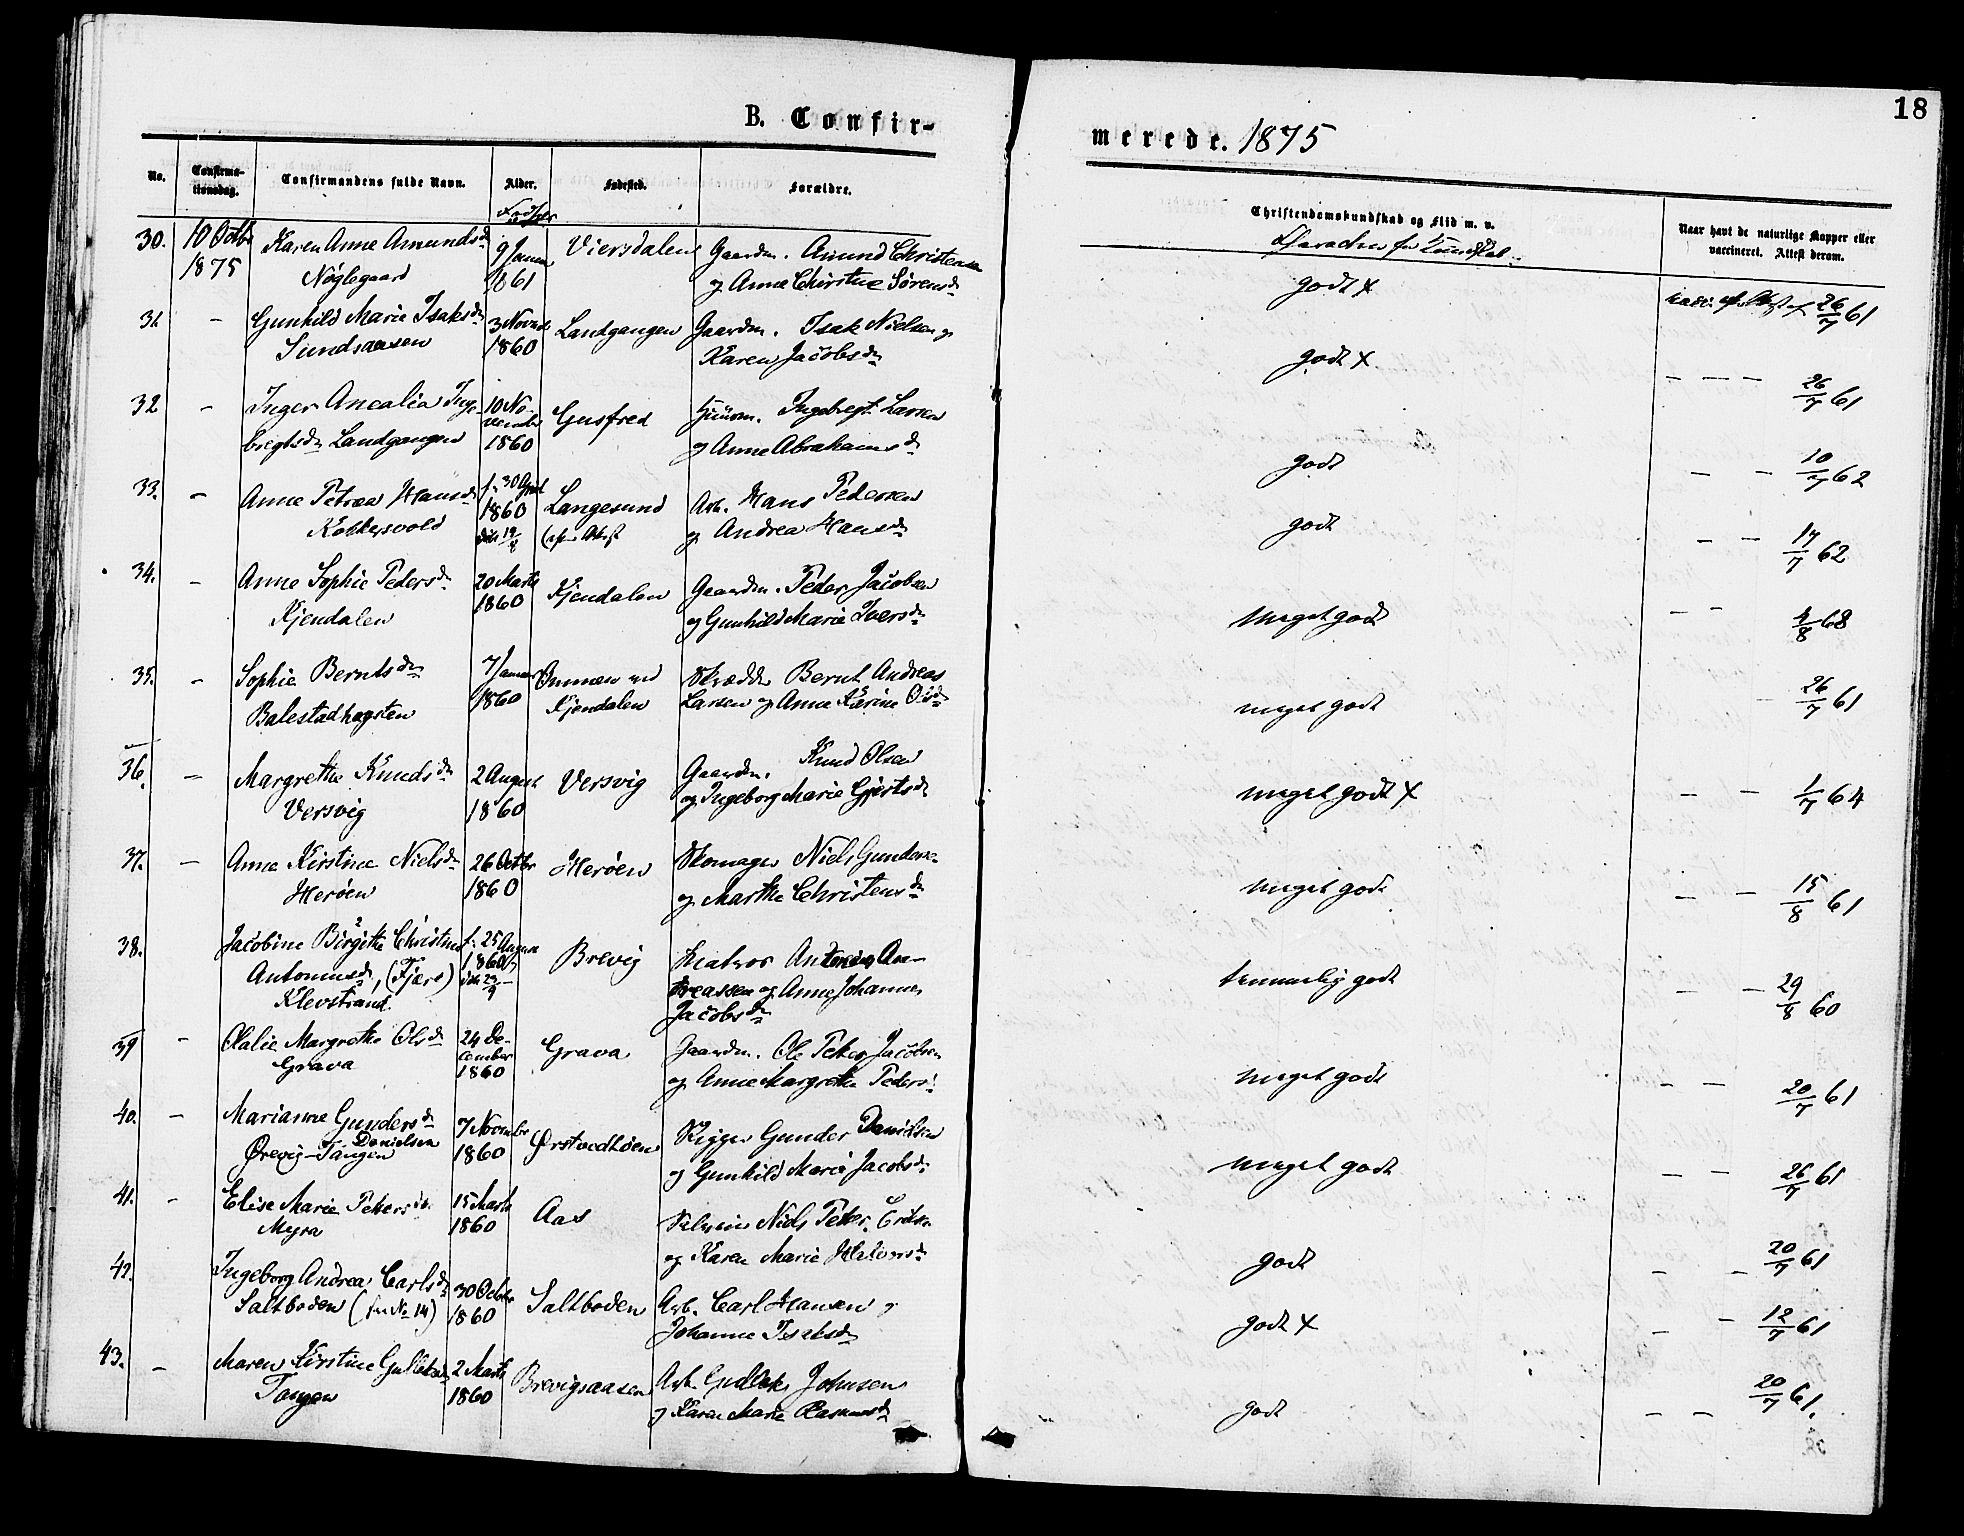 18
B. Confir-
merede. 1875
No.
Confirma-
tionsdag.
Confirmandens fulde Navn.
Alder.
Fødested.
Forældre.
Christendomskundskab og Flid m. v.
Naar havt de naturlige Kopper eller
vaccineret. Attest derom.
30. 10 Octb Karen Anne Amundsd 9 Januar Viersdalen Gaardm. Amund Christensen
1875 Nøglegaard 1861 og Anne Christine Sørensd
godt x 26/7 61
31 - Gunhild Marie Isaksd 3 Novbr Landgangen Gaardm. Isak Nielsen og
Sundsaasen 1860 Karen Jacobsd
godt x - - - 26/7 61
32 - Inger Amalia Inge- 10 No- Gusfred Huusm. Ingebregt Larsen
bregtsd Landgangen vember 1860 og Anne Abrahamsd
godt - - 10/7 62
33. - Anne Petrea Hansd f. 30 April Langesund Arb. Hans Pedersen
1860 og Andrea Hansd
godt - - 17/7 62
34. - Anne Sophie Pedersd 20 Marts Kjendalen Gaardm. Peder Jacobsen
Kjendalen 1860 og Gunhild Marie Iversd
meget godt - - 4/8 68
35. - Sophie Berntsd 7 Januar Ommen ved Skrædder Bernt Andreas
Balestadhøgsten 1860 Kjendalen Larsen og Anne Karine Olsd
meget godt - 26/7 61
36. - Margrethe Knudsd 2 August Versvig Gaardm. Knud Olsen
Versvig 1860 og Ingeborg Marie Gjertsd
meget godt x - - 1/7 64
37. - Anne Kirstine Nielsd 26 Octbr Herøen Skomager Niels Gundersen
Herøen 1860 og Marthe Christensd
meget godt - - 15/8 61
38. Jacobine Birgitte Christine f. 25 August Brevig Matros Antonius An-
Antoniusd, (Fjære) 1860 dreassen og Anne Johanne
Klevstrand Jacobsd
temmelig godt - - 29/8 60
39 - Olalie Margrethe Olsd 24 De- Grava Gaardm. Ole Peter Jacobsen
Grava cember 1860 og Anne Margrethe Pedersd
meget godt - - 20/7 61
40. - Marianne Gundersd 7 Novembr Ørstvedthøen Rigger Gunder Danielsen
Danielsen
Ørevig-Tangen 1860 og Gunhild Marie Jacobsd
meget godt - - 26/7 61
41. - Elise Marie Petersd 15 Marts Aas Niels Peter
Myra 1860 og Karen Marie Halvorsd
godt - - 20/7 61
42. Ingeborg Andrea Carlsd 30 Octobr Saltboden Arb. Carl Hansen og
Saltboden (No 14) 1860 Johanne Isaksd
godt x - - 12/7 61
43. - Maren Kirstine Gulleksd 2 Marts Brevigsaasen Arb. Gullek Johnsen
Tangen 1860 og Karen Marie Rasmusd
godt - - 20/7 61.